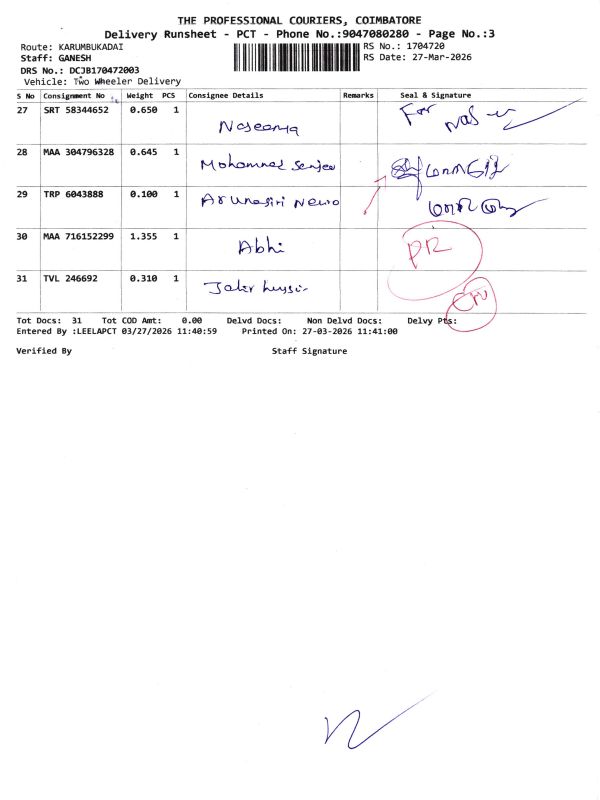 THE PROFESSIONAL COURIERS, COIMBATORE
Delivery Runsheet - PCT - Phone No.:9047080280 - Page No.:3
Route: KARUMBUKADAI
RS No.: 1704720
Staff: GANESH
RS Date: 27-Mar-2026
DRS No.: DCJB170472003
Vehicle: Two Wheeler Delivery
S No Consignment No Weight PCS Consignee Details Remarks Seal & Signature
27 SRT 58344652 0.650 1 For
28 MAA 304796328 0.645 1 Mohammed
29 TRP 6043888 0.100 1
30 MAA 716152299 1.355 1 Abhi PR
31 TVL 246692 0.310 1
Tot Docs: 31 Tot COD Amt: 0.00 Delvd Docs: Non Delvd Docs: Delvy Pts:
Entered By :LEELAPCT 03/27/2026 11:40:59 Printed On: 27-03-2026 11:41:00
Verified By Staff Signature